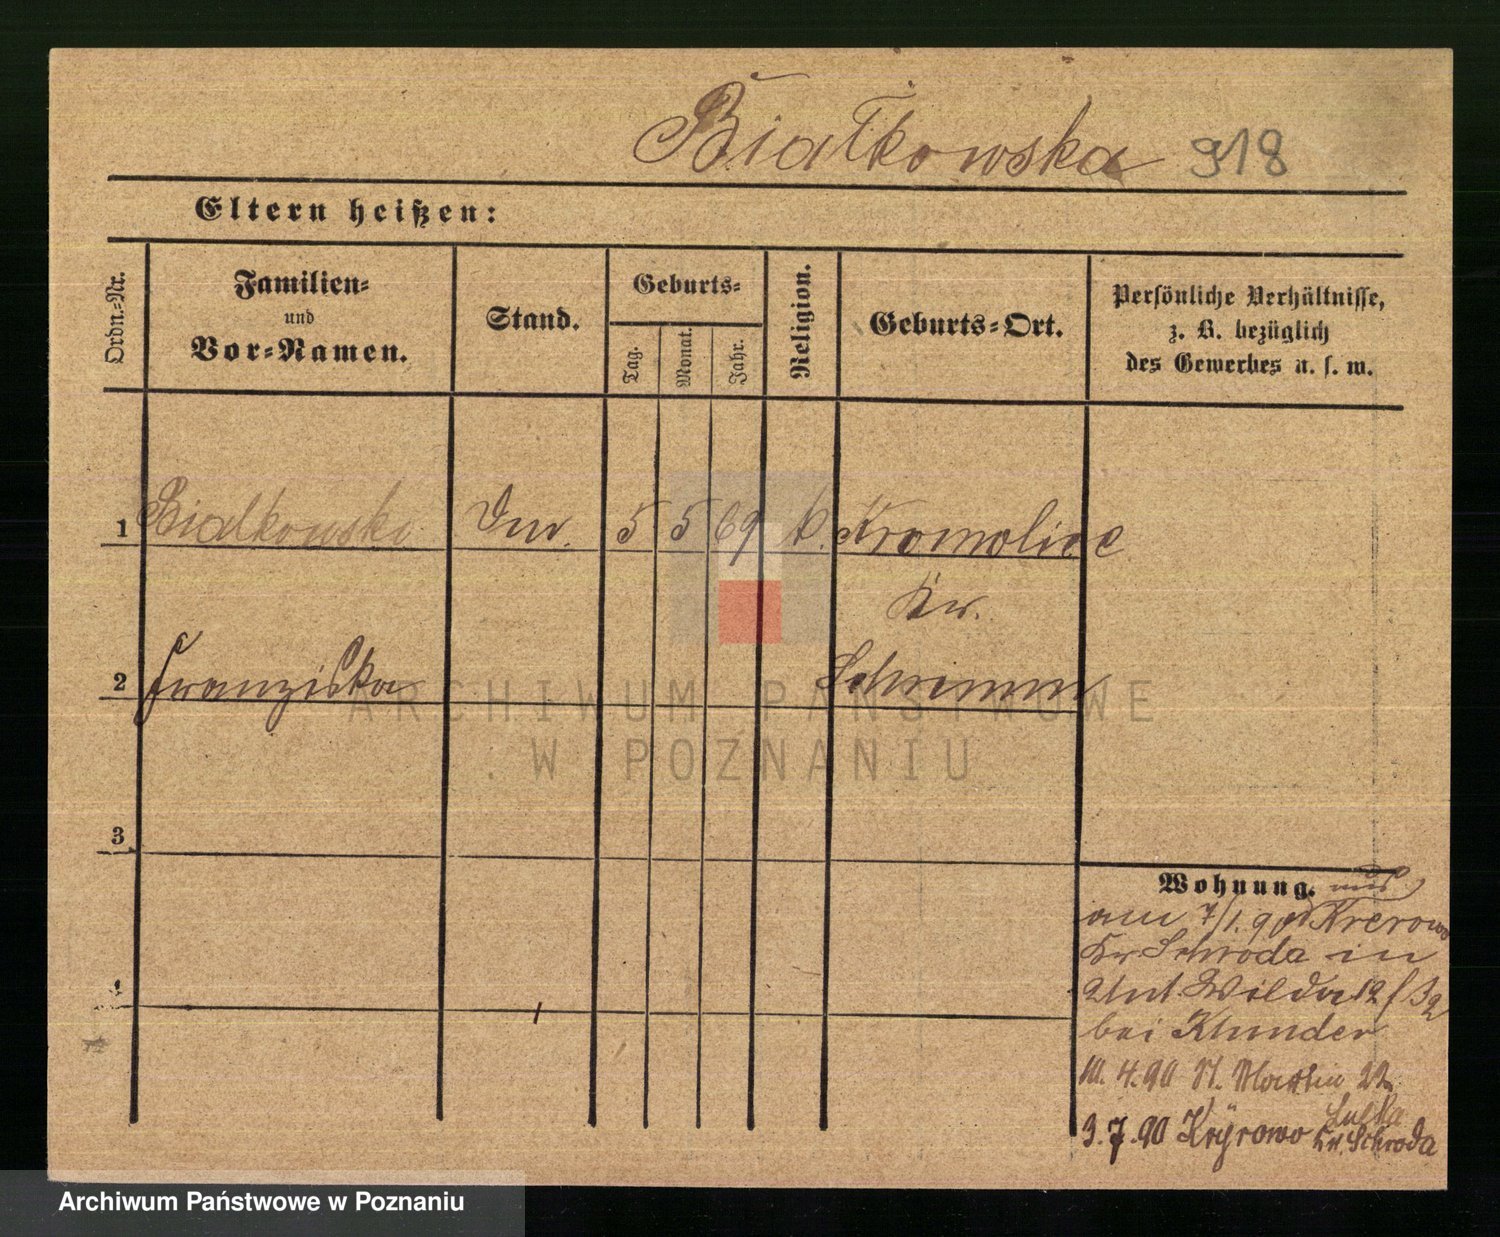 Białkowska 918
Eltern heißen:
Ordn.-Nr.
Familien-
und
Vor-Namen.
Stand.
Geburts-
Tag.
Monat.
Jahr.
Religion.
Geburts-Ort.
Persönliche Verhältnisse,
z. B. bezüglich
des Gewerbes u. s. w.
1 Bialkowski 5 5 69 k. Kromolice
Kr.
2 Franziska Schrimm
ARCHIWUM PAŃSTWOWE
W POZNANIU
3
4
Wohnung. aus
am 7/1.90 Krerowo
Kr Schroda in
Unt. Wilda 12
bei Klunder
10. 4. 90 St. Martin 22
3. 7. 90 Kryrowo Kr. Schroda
Archiwum Państwowe w Poznaniu